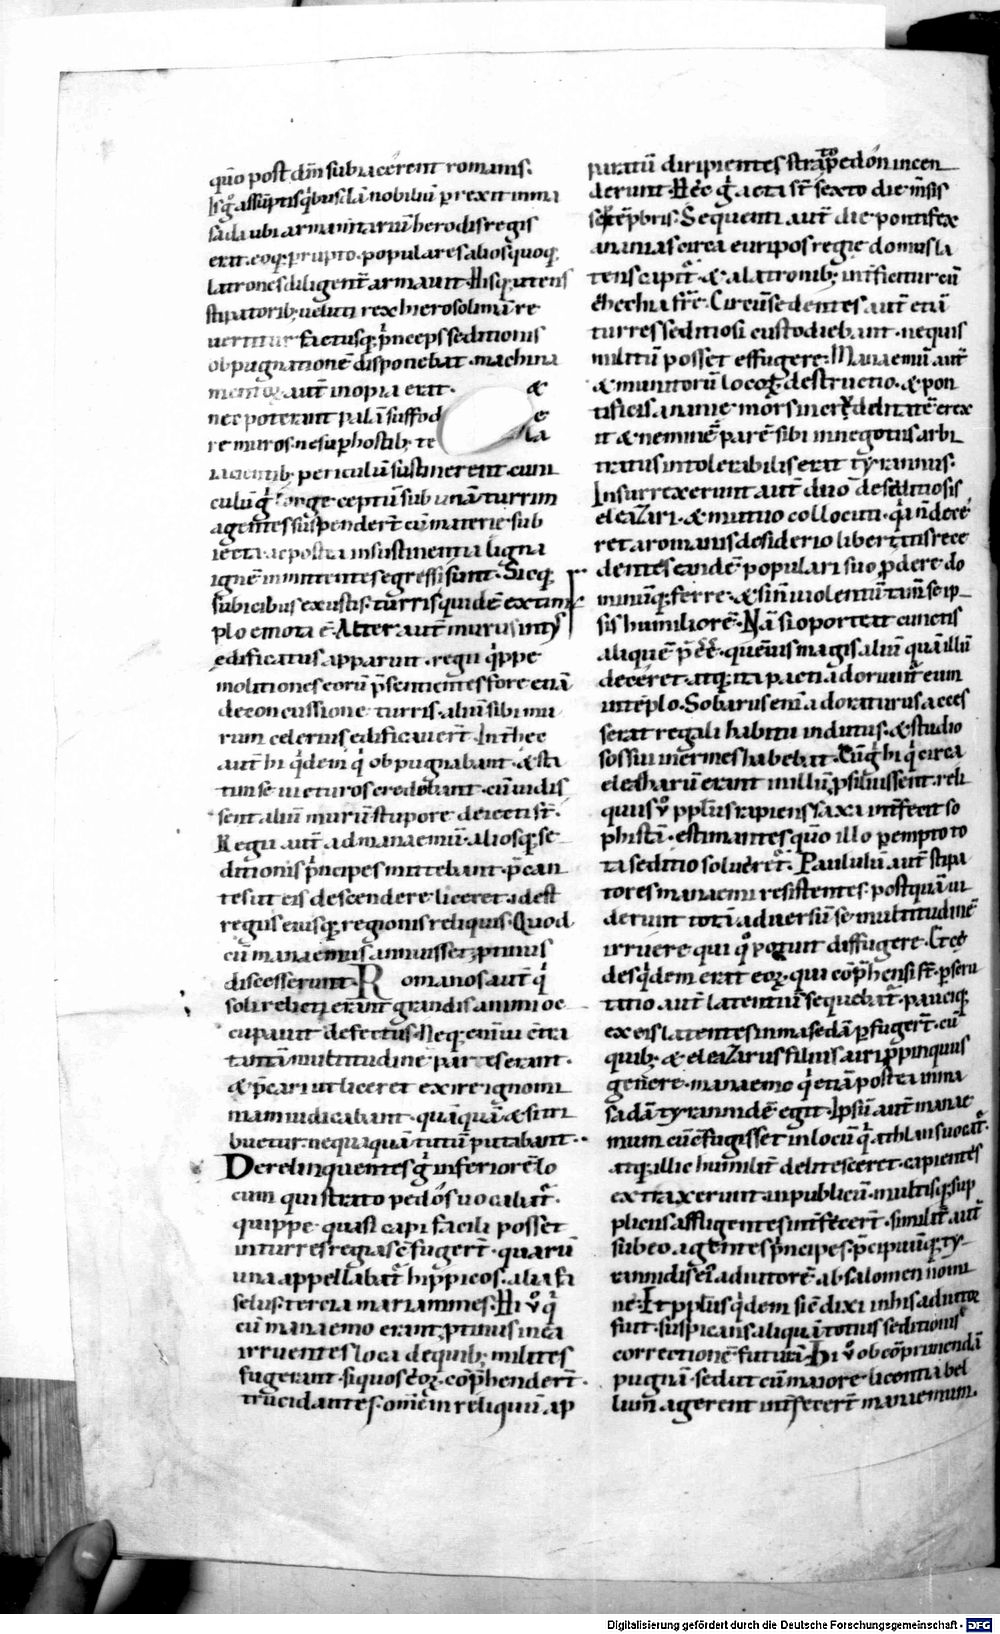 quō post dm̄ subiacerent romanis.
Is ḡ assūptis q̇busdā nobiliū ꝑrexit in ma
sada ubi armamtariū herodis regis
erat. eoq; ꝑrupto. populares aliosquoq;
latrones diligent̄ armauit. Hisq; utens
stipatorib; ueluti rex hierosolimā re
uertitur factusq; p̄nceps seditionis
obpugnationē disponebat. machina
mentoꝝ aut̄ inopia erat. &
nec poterant palā suffod e
re muros. ne sup̱ hostib; te la
iacientib; periculū sustinerent. cuni
culū ḡ longe ceptū sub unā turrim
agentes suspender̄t cū materie sub
iecta ac postea insustinentia ligna
ignē inmittentes egressi sunt. Sicq;
subicibus exustis. turris quidē extim
plo emota ē. Alter aut̄ murus intus
edificatus apparuit. regii q̇ppe
molitiones eorū p̄sentientes fore etiā
de concussione turris. aliū sibi mu
rum celerius edificauer̄t. In thec
aut̄ hi q̇dem q̇ obpugnabant. & sta
tim se uicturos credebant. cū uidis
sent aliū murū stupore deiecti st̄.
Regii aut̄ ad manaemū. aliosq; se
ditionis p̄ncipes mittebant. p̄can
tes ut eis descendere liceret. idest
regiis eiusq; regionis reliquis. Quod
cū manaemus annuisset. ꝓtinus
discesserunt. Romanos aut̄ q̇
soli relicti erant grandis animi oc
cupauit defectus. Neq; enim ui cētra
tantā multitudinē pares erant.
& p̄cari ut liceret exire ignomi
niam iudicabant. quāquā & si tri
buetur. nequaquā tutū putabant.
Derelinquentes ḡ inferiorē lo
cum qui strato pedos uocabat̄.
quippe quasi capi facili posset
in turres regias c̄fugert̄. quarū
una appellabat̄ hippicos. alia fa
selus. tercia mariammes. Hi v̊ q̇
cū manaemo erant. ꝓtinus in ea
irruentes loca de quib; milites
fugerant. siquos eoꝝ. cōp̄hendert̄.
trucidantes. omēm reliquū ap
paratū diripientes strapedōn incen
derunt. Hec ḡ acta st̄ sexto die m̄sis
septēbris. Sequenti aut̄ die pontifex
ananias circa euripos regie domus la
tens capit̄. & a latronib; intficitur cū
ezechia fr̄e. Circūsedentes aut̄ etiā
turres seditiosi custodiebant. nequis
militū posset effugere. Manaemū aut̄
& munitorū locoꝝ destructio. & pon
tificis ananie mors in crudelitatē erex
it & neminē parē sibi in negotiis arbi
tratus intolerabilis erat tyrannus.
Insurrexerunt aut̄ duo de seditiosis
eleazari. & mutuo collocuti. q̇a n̄ dece
ret a romanis desiderio libertatis rece
dentes eandē populari suo ꝓdere. do
minūq; ferre. & si n̄ uiolentū tam̄ se ip
sis humiliorē. Nā si oporteat cunctis
aliquē p̄ēe. quēuis magis aliū quā illū
deceret. atq; ita pacti adoriunt̄ eum
in tēplo. Sobarus enī adoraturus acces
serat regali habitu indutus. & studio
sos suū inermes habebat. Cūḡ hi q̇ circa
eleazarū erant in illū ꝓsiluissent. reli
quus v̊ ppl̄us rapiens saxa intfecit so
phistā. estimantes quō illo ꝑempto to
ta seditio solueret̄. Paululū aut̄ stipa
tores manaemi resistentes. postquā ui
derunt totā aduersū se multitudinē
irruere. qui q̊ potuit diffugere. Cæe
des q̇dem erat eoꝝ. qui cōp̄hensi st̄. ꝑscru
tatio aut̄ latentiū sequebat̄. pauciq;
ex eis latentes in masadā ꝑfugert̄. cū
quib; & eleazarus filius airi ꝓpinquus
genere. manaemo q̇ etiā postea in ma
sadā tyrannidē egit. Ipsū aut̄ manae
mum cū c̄fugisset in locū q̇. athlas uocat̄.
atq; illic humilit̄ delitesceret. capientes
extraxerunt in publicū. multisq; sup
pliciis affligentes intfecer̄t. similit̄ aut̄
sub eo agentes p̄ncipes. p̄cipuūq; ty
rannidis ei adiutorē. absalomen nōmi
ne. Et ppl̄us q̇dem sic dixi in his adiutor
fuit. suspicans aliquā totius seditionis
correctionē futurā. Hi v̊ ob cōp̄mendā
pugnā. sed ut cū maiore. licentia bel
lum agerent intfecer̄t manaemum.
Digitalisierung gefördert durch die Deutsche Forschungsgemeinschaft - DFG